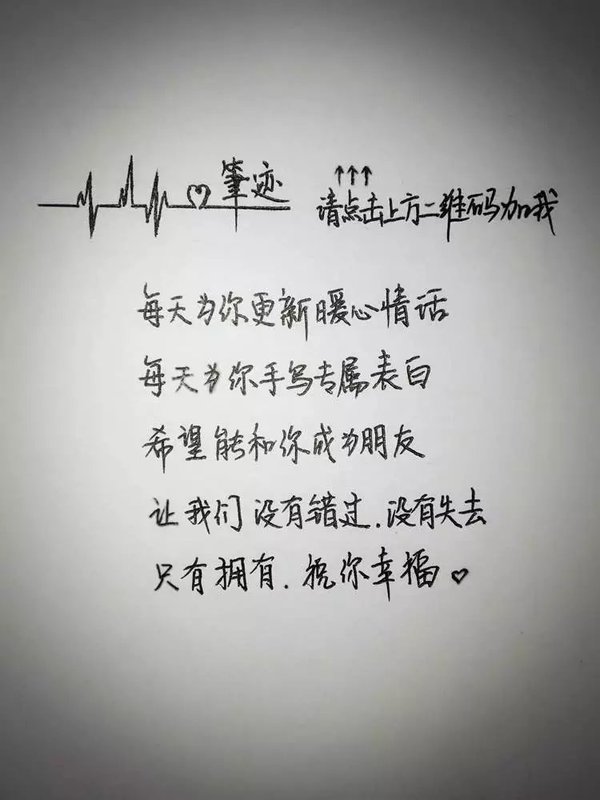 筆迹
↑↑↑
请点击上方二维码加我
每天为你更新暖心情话
每天为你手写专属表白
希望能和你成为朋友
让我们没有错过.没有失去
只有拥有.祝你幸福♡